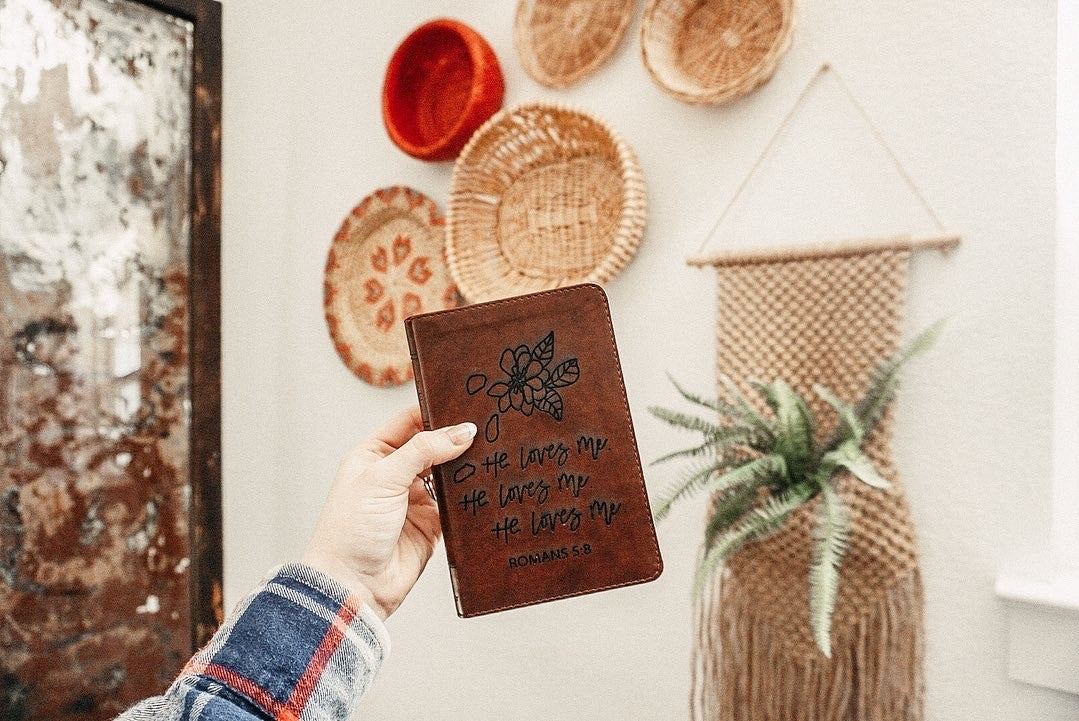 He loves me.
He loves me
He loves me.
ROMANS 5:8